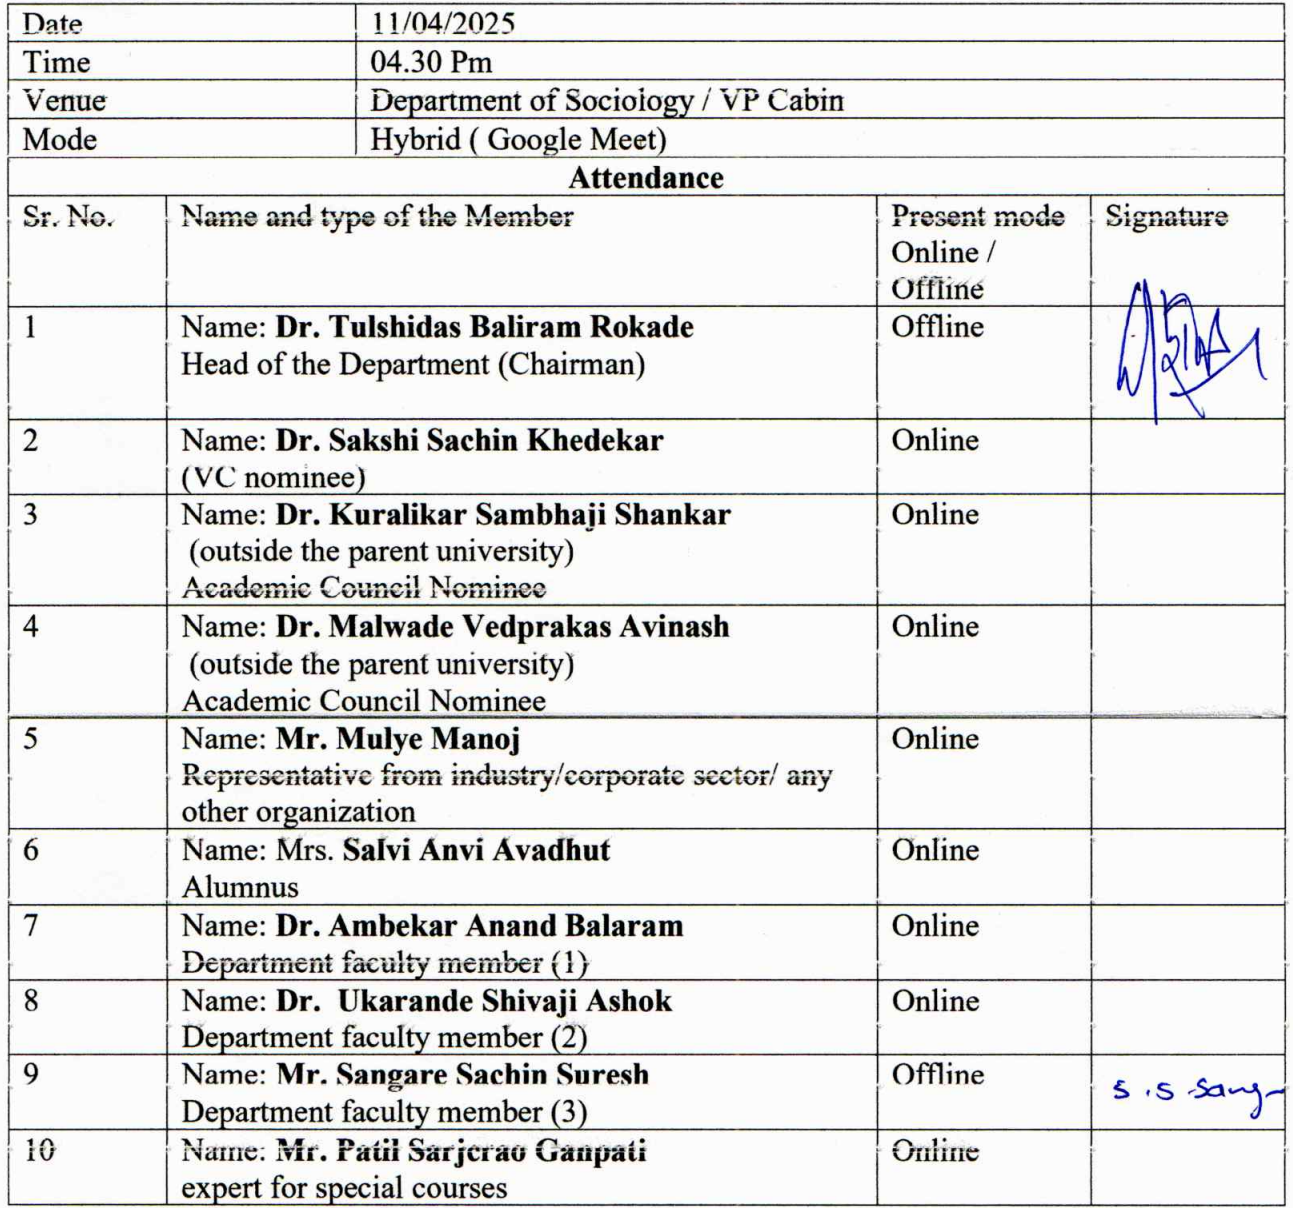 Date 11/04/2025
Time 04.30 Pm
Venue Department of Sociology / VP Cabin
Mode Hybrid ( Google Meet)
Attendance
Sr. No. Name and type of the Member Present mode Signature
Online /
Offline
1 Name: Dr. Tulshidas Baliram Rokade Offline
Head of the Department (Chairman)
2 Name: Dr. Sakshi Sachin Khedekar Online
(VC nominee)
3 Name: Dr. Kuralikar Sambhaji Shankar Online
(outside the parent university)
Academic Council Nominee
4 Name: Dr. Malwade Vedprakas Avinash Online
(outside the parent university)
Academic Council Nominee
5 Name: Mr. Mulye Manoj Online
Representative from industry/corporate sector/ any
other organization
6 Name: Mrs. Salvi Anvi Avadhut Online
Alumnus
7 Name: Dr. Ambekar Anand Balaram Online
Department faculty member (1)
8 Name: Dr. Ukarande Shivaji Ashok Online
Department faculty member (2)
9 Name: Mr. Sangare Sachin Suresh Offline
Department faculty member (3) S.S.Sang
10 Name: Mr. Patil Sarjerao Ganpati Online
expert for special courses